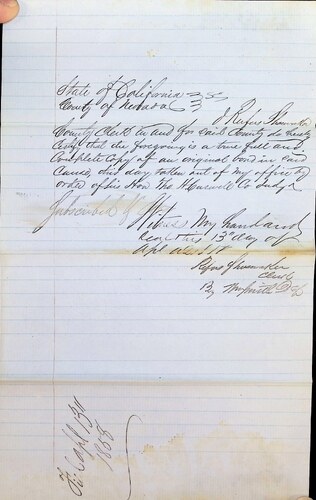 State of California } SS
County of Nevada }
I Rufus Shoemaker
County Clerk in and for said County do hereby
certify that the foregoing is a true full and
complete copy of an original bond in said
cause, this day taken out of my office by
order of his Hon Tho H Caswell Co Judge
Subscribed
Witness My hand and
seal this 13th day of
Sept
Rufus Shoemaker
Clerk
By Wm Smith D C
Sept 13th
1858